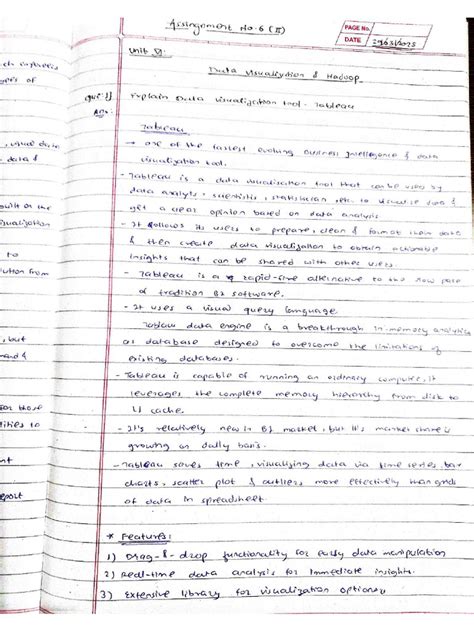 Assingnment No-6 (II)
PAGE No.
DATE 29/03/2025
Unit V
Data visualization & Hadoop
Que 1] Explain Data visualization tool - Tableau
Ans:
Tableau
→ One of the fastest evolving Business Intelligence & data
visualization tool.
- Tableau is a data visualisation tool that can be used by
data analyts, scientists, statistician, etc. to visualize data &
get a clear opinion based on data analysis
- It follows its users to prepare, clean & format their data
& then create data visualization to obtain actionable
insights that can be shared with other users.
- Tableau is a rapid-fire alternative to the slow pace
of tradition BI software.
- It uses a visual query language.
Tablau data engine is a breakthrough in-memory analytics
database designed to overcome the limitations of
existing databases.
- Tableau is capable of running an ordinary computer, it
leverages the complete memory hierarchy from disk to
L1 cache.
- It's relatively new in BI market, but it's market share is
growing on daily basis.
- Tableau saves time, visualizing data via time series, bar
charts, scatter plot & outliers more effectively than grids
of data in spreadsheet.
* Features:
1) Drag-&-drop functionality for easy data manipulation
2) Real-time data analysis for immediate insights.
3) Extensive library for visualization options